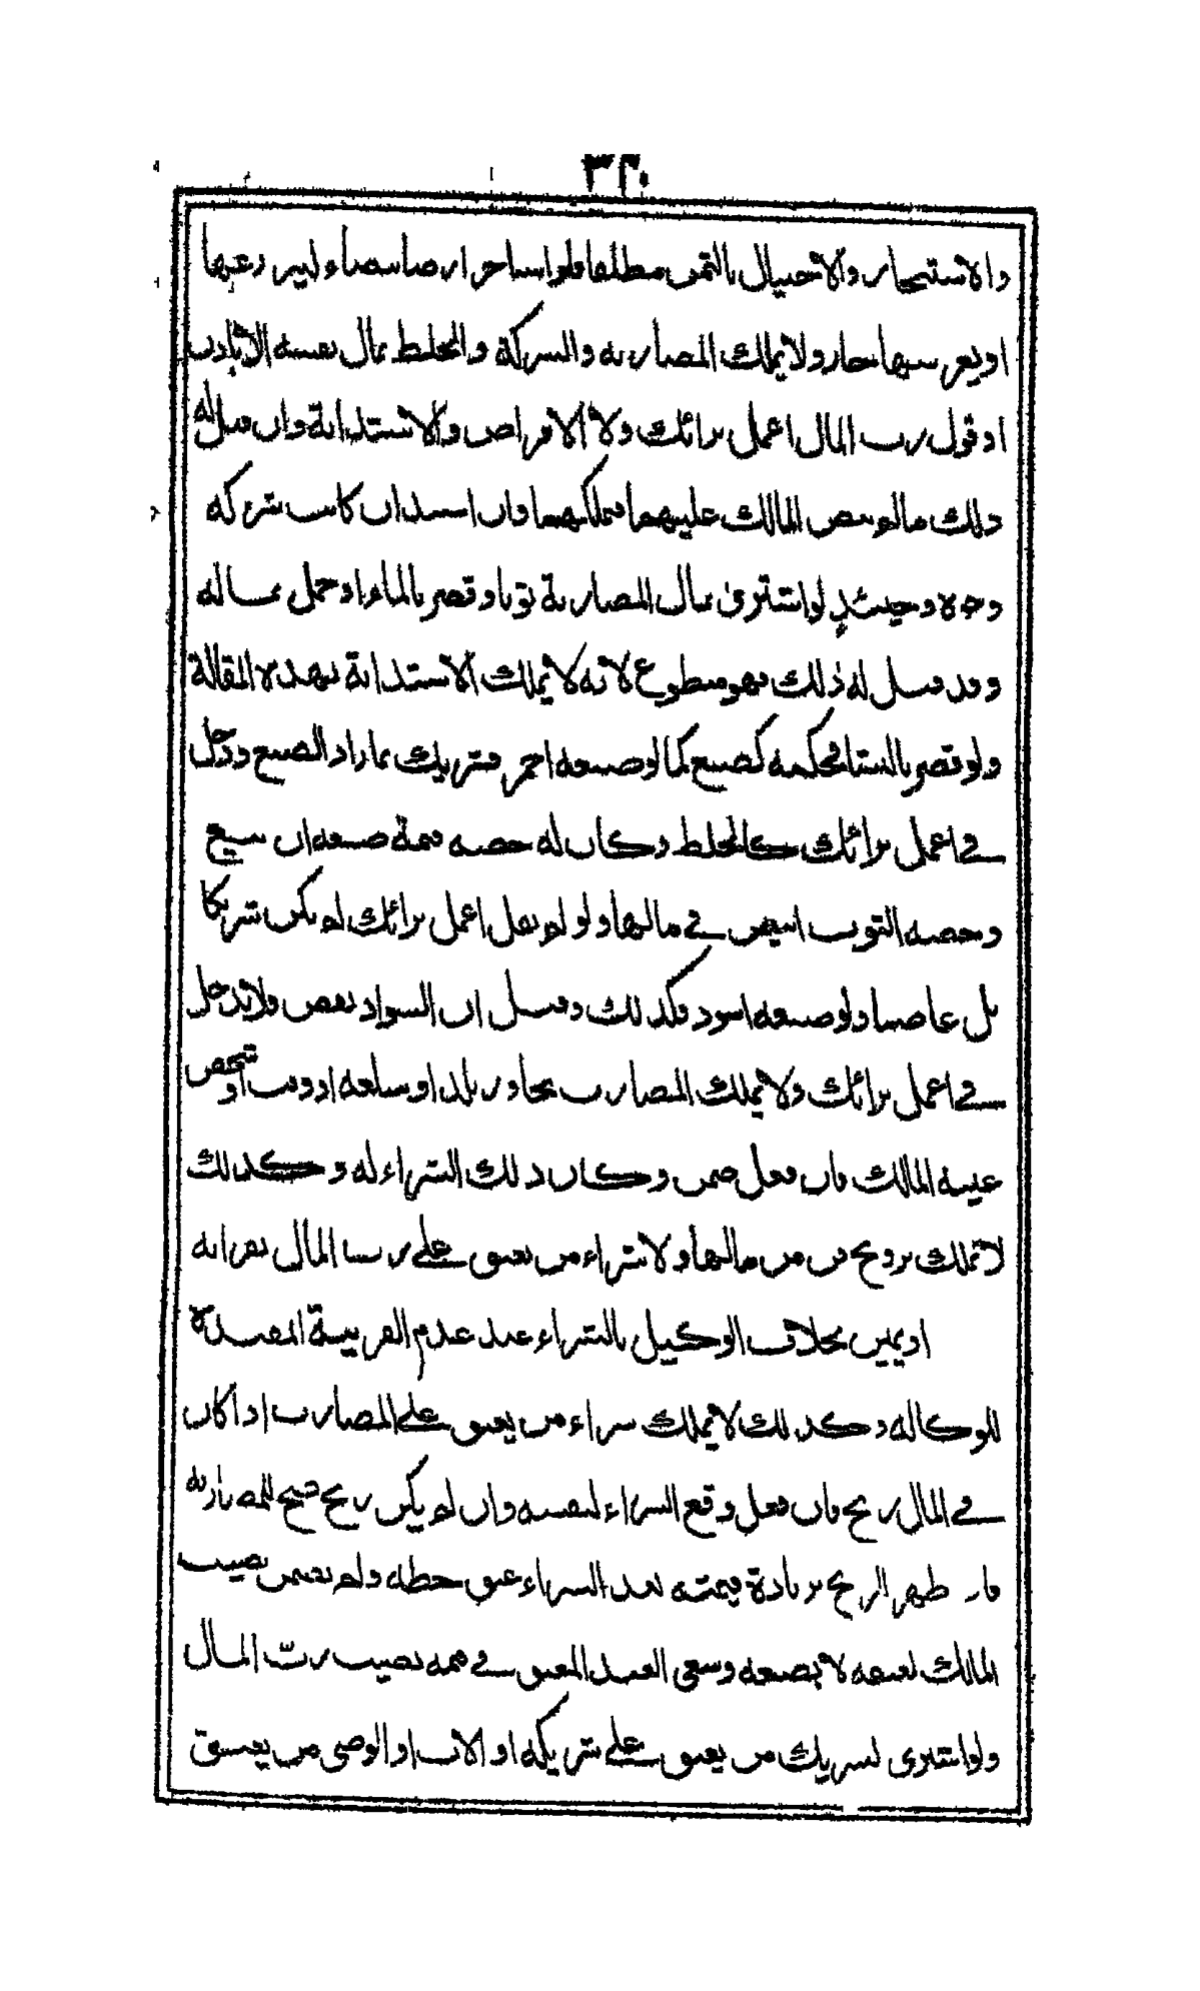 ٣٢٠
والاستيجار والاحتيال بالثمن مطلقا فلو استاجر ارضا بيضاء ليزرعها
او يغرسها جاز ولا يملك المضاربة والشركة والخلط بمال نفسه الا باذن
او قول رب المال اعمل برائك ولا الاقراض والاستدانة وان قيل له
ذلك مالم ينص المالك عليهما فيملكهما وان استدان كانت شركه
وجوه وحينئذ لو اشترى بمال المضاربة ثوبا وقصر بالماء او حمل بماله
وقد قيل له ذلك فهو متطوع لانه لا يملك الاستدانة بهذه المقالة
ولو قصر بالنشا فحكمه كصبغ كما لو صبغه احمر فشريك بما زاد الصبغ ودخل
في اعمل برائك كالخلط وكان له حصه قيمة صبغه ان بيع
وحصه الثوب ابيض في مالها ولو لم يقل اعمل برائك لم يكن شريكا
بل غاصبا ولو صبغه اسود فكذلك وقيل ان السواد نقص فلا يدخل
في اعمل برائك ولا يملك المضارب تجاوز بلد او سلعه او وقت او شخص
عينه المالك فان فعل ضمن وكان ذلك الشراء له وكذلك
لا تملك تزويج قن من مالها ولا شراء من يعتق على رب المال بقرابه
او يمين بخلاف الوكيل بالشراء عند عدم القرينة المقيدة
للوكاله وكذلك لا يملك شراء من يعتق على المضارب اذا كان
في المال ربح فان فعل وقع الشراء لنفسه وان لم يكن ربح صح للمضاربه
فان ظهر الربح بزيادة قيمته بعد الشراء عتق حظه ولم يضمن نصيب
المالك لعتقه لا بصنعه وسعى العبد المعتق في قيمه نصيب ربّ المال
ولو اشترى الشريك من يعتق على شريكه او الاب او الوصى من يعتق